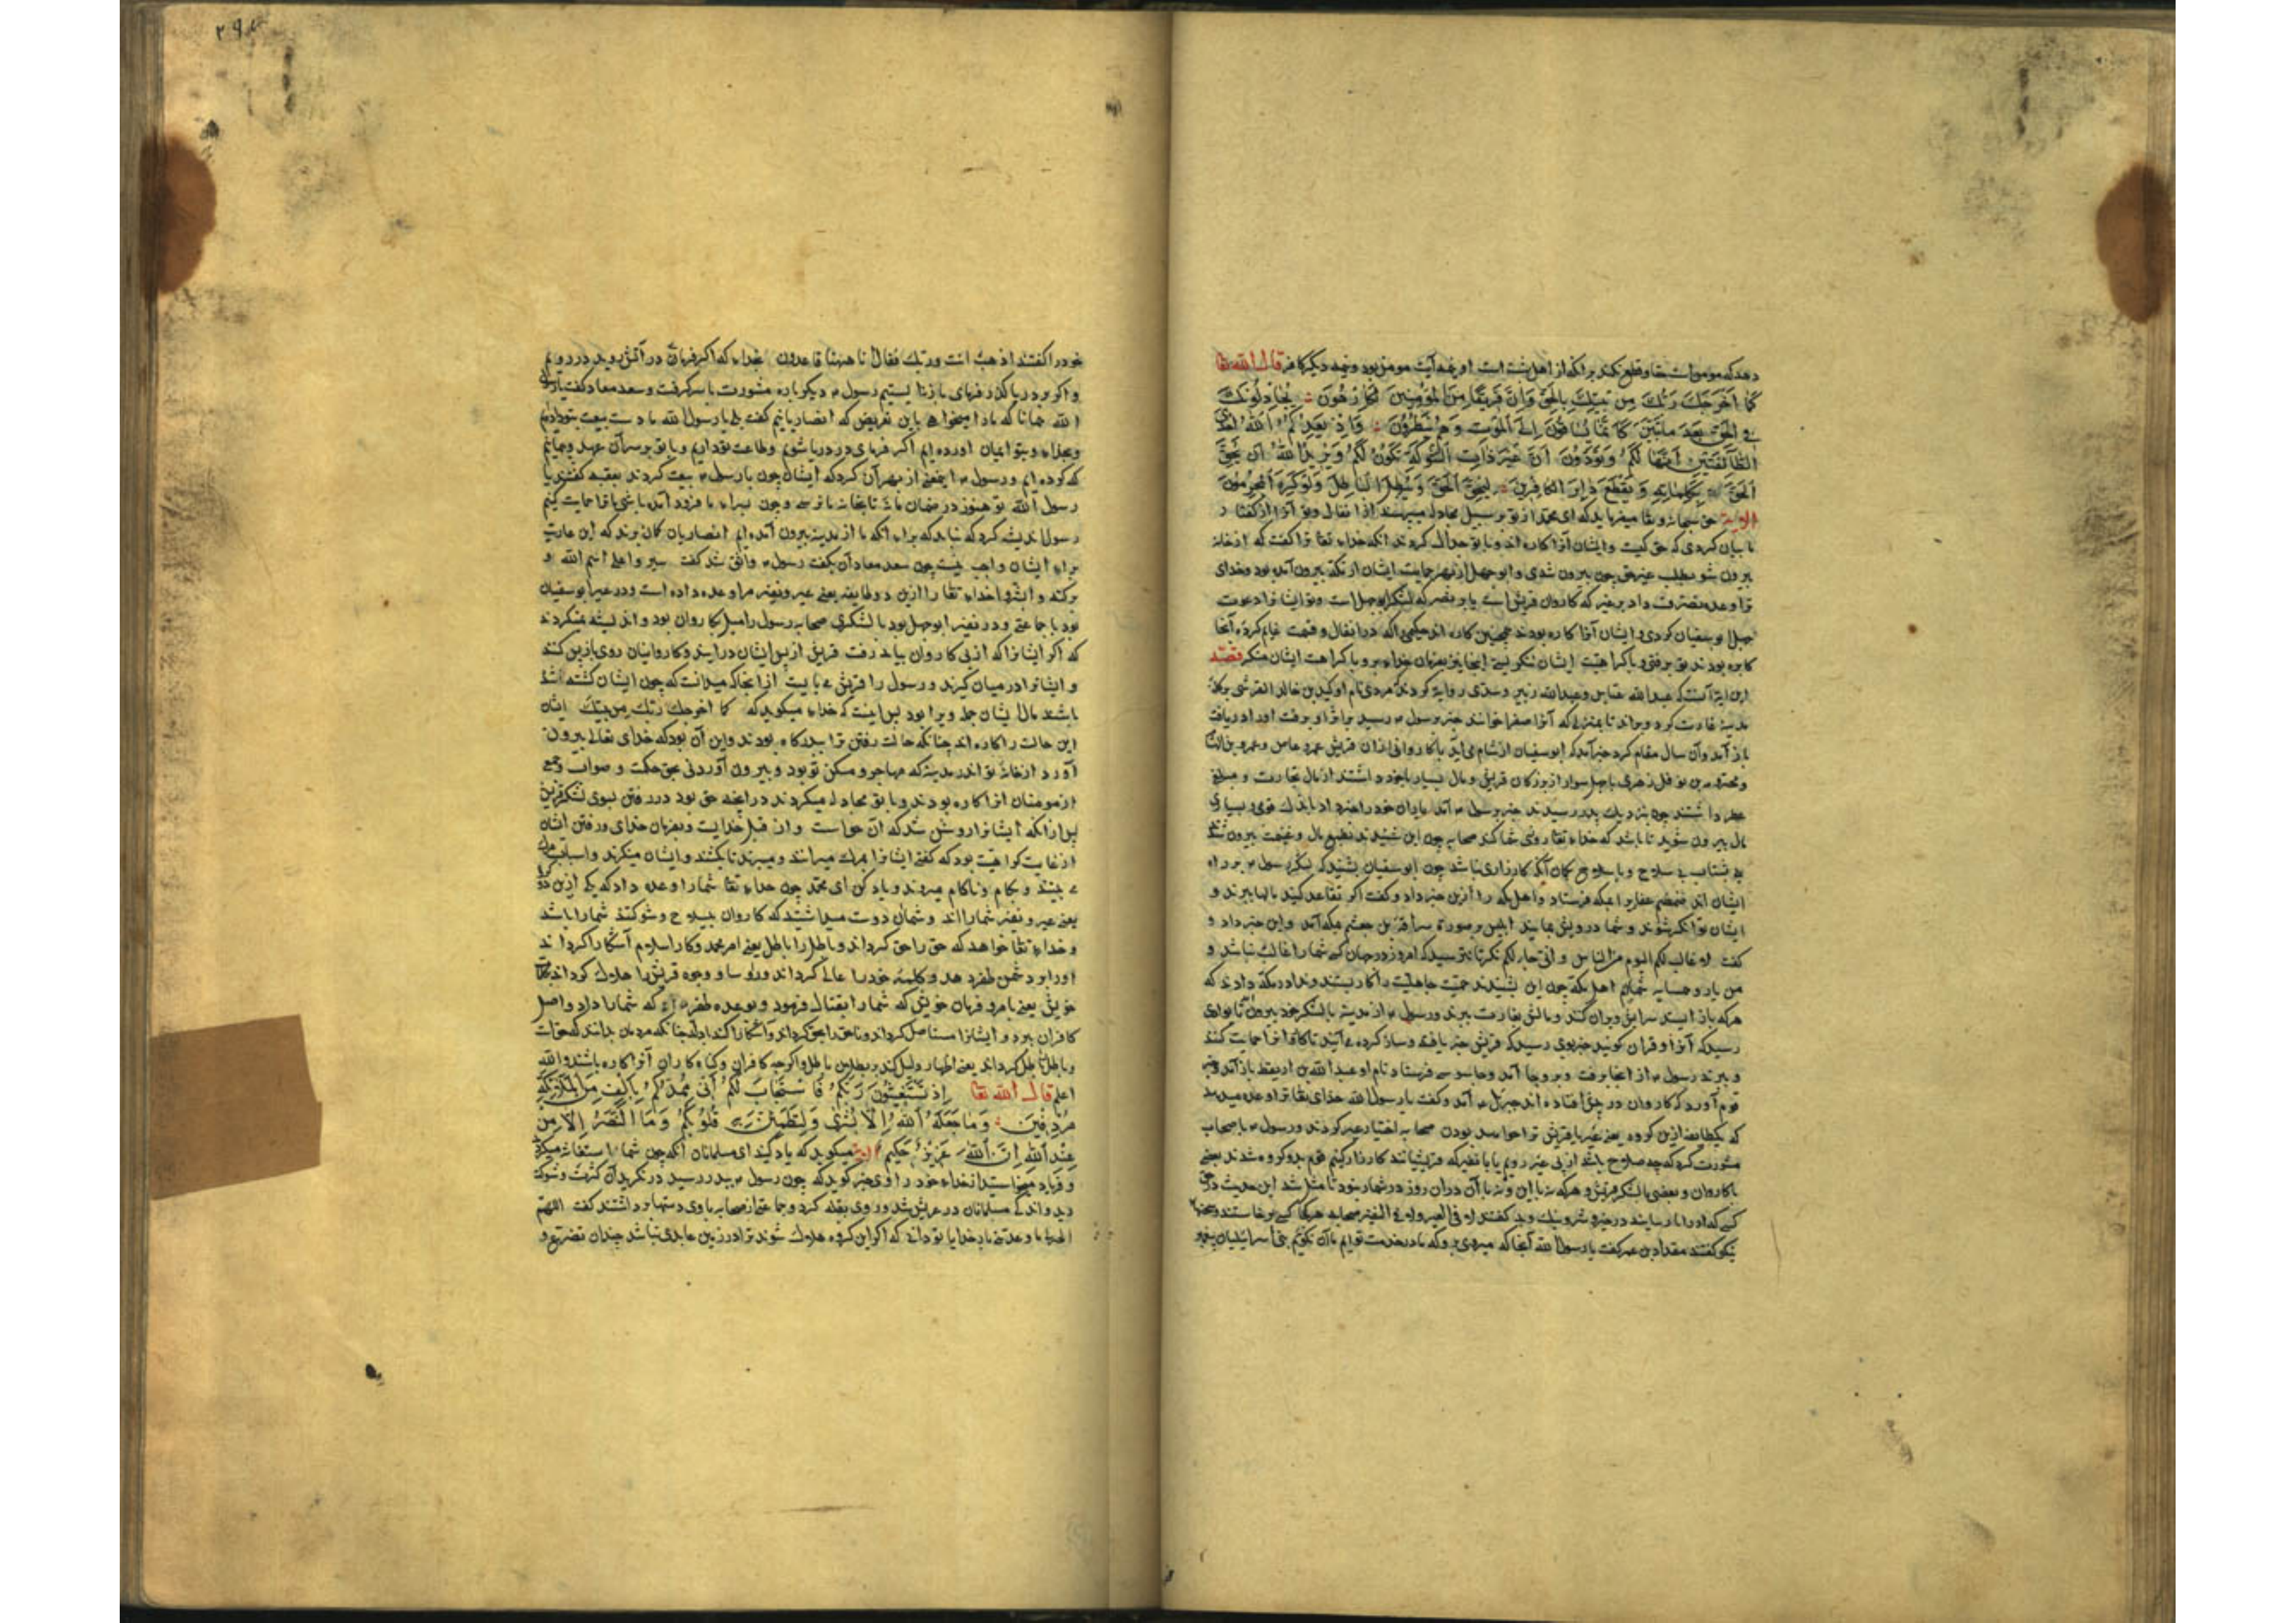 دهد که مومن است حقا و قطع نکند بر انکه از اهل بهشت است او بنیمه آیت مومن بود و بنیمه دیگر کافر قال الله تعا
كَمَا أَخْرَجَكَ رَبُّكَ مِن بَيْتِكَ بِالْحَقِّ وَإِنَّ فَرِيقًا مِنَ الْمُؤْمِنِينَ لَكَارِهُونَ يُجَادِلُونَكَ
فِي الْحَقِّ بَعْدَ مَا تَبَيَّنَ كَأَنَّمَا يُسَاقُونَ إِلَى الْمَوْتِ وَهُمْ يَنْظُرُونَ وَإِذْ يَعِدُكُمُ اللهُ إِحْدَى
الطَّائِفَتَيْنِ أَنَّهَا لَكُمْ وَتَوَدُّونَ أَنَّ غَيْرَ ذَاتِ الشَّوْكَةِ تَكُونُ لَكُمْ وَيُرِيدُ اللهُ أَنْ يُحِقَّ
الْحَقَّ بِكَلِمَاتِهِ وَيَقْطَعَ دَابِرَ الْكَافِرِينَ لِيُحِقَّ الْحَقَّ وَيُبْطِلَ الْبَاطِلَ وَلَوْ كَرِهَ الْمُجْرِمُونَ
الایه حق سبحانه و تعا میفرماید که ای محمد از تو بر سبیل مجادله میپرسند از انفال و تو آنرا از کفتار
ما بیان کردی که حق کیست و ایشان آنرا کاره اند و با تو جدال کردند انکه خداء تعا ترا کفت که از خانه
بیرون شو بطلب عیر حق چون بیرون شدی و ابوجهل از بهر حمایت ایشان از مکه بیرون آمده بود و خدای
ترا وعده نصرت داد بر عیر که کاروان قریش است یا بر نفیر که لشکر ابوجهل است و تو ایشانرا دعوت
کاره بودند تو برفتی و با کراهیت ایشان ننکریستی اینجا نیز بفرمان خداء برو و با کراهت ایشان منکر قصه
این آیه آنست که عبد الله عباس و عبد الله زبیر و سدی روایة کردند که مردی نام او کرز بن خالد القرشی بر کله
مدینه غارت کرد و براند تا بمنزلی که آنرا صفرا خوانند خبر برسول رسید بر اثر او برفت او را در نیافت
باز آمد و آن سال مقام کرد خبر آمد که ابو سفیان از شام می آید با کاروانی از آن قریش عمرو عاص و عمرو بن
و مخرمه بن نوفل زهری با چهل سوار از بزرکان قریش و مال بسیار با خود داشتند از مال تجارت و مبلغی
عطر داشتند چون بنزدیک بدر رسیدند خبر برسول آمد یاران خود را خبر داد باندک قوم و بسیاری
مال بیرون شوید تا باشد که خداء تعا روزی شما کند صحابه چون این شنیدند بطمع مال و غنیمت بیرون شدند
بشتاب بی سلاح و با سلاح کمان آنکه کارزاری نباشد چون ابو سفیان بشنید که لشکر رسول بر راه
ایشان اند ضمضم غفاری را بمکه فرستاد و اهل مکه را ازین خبر داد و کفت اکر تقاعد کنید مالها ببرند و
ایشان توانکر شوند و شما درویش بمانید ابلیس بر صورة سراقة بن جعشم بمکه آمد و این خبر داد و
کفت لا غالب لکم الیوم من الناس و انی جار لکم نکر تا نترسید که امروز در جهان کسی شما را غالب نباشد و
من یار و همسایه شمایم اهل مکه چون این بشنیدند حمیت جاهلیت را کار بستند و ندا در مکه دادند که
هرکه باز ایستد سرایش ویران کنند و مالش بغارت ببرند و رسول از مدینه با لشکر خود بیرون تا بوادی
رسید که آنرا وقران کویند خبر بوی رسید که قریش خبر یافته و ساز کرده می آیند تا کاروانرا حمایت کنند
و ببرند رسول از آنجا برفت و بروحا آمد و جاسوسی فرستاد نام او عبد الله بن اریقط باز آمد و خبر
قوم آورد که کاروان در پیش افتاده اند جبرئیل آمد و کفت یا رسول الله خدای تعا ترا وعده میدهد
که یکطایفه ازین کروه یعنی عیر یا قریش ترا خواهد بودن صحابه اختیار عیر کردند و رسول با صحاب
مشورت کرد که چه صلاح باشد از پی عیر رویم یا با نفیر که قریشیانند کارزار کنیم قوم بدو کروه شدند بعضی
با کاروان و بعضی با لشکر قریش و هرکه نه با این و نه با آن دران روز در شمار نبود تا مثل شد این حدیث در حق
کسی که او را نارسایند در خیر و شر و نیک و بد کفتند لا فی العیر و لا فی النفیر صحابه هر یکا کسی برخاستند و سخنها
نیکو کفتند مقداد بن عمر کفت یا رسول الله آنجا که میروی برو که ما در خدمت توایم ما آن نکویم که بنی اسرائیلیان پیغمبر
خود را کفتند اذهب انت و ربک فقاتلا انا ههنا قاعدون بخداء که اکر فرمائی در آتش روید در رویم
و اکر بر دریا کذر فرمائی باز نا ایستیم رسول دیکر باره مشورت با سر کرفت و سعد معاذ کفت یا رسول
الله همانا که ما را میخواهی باین تعریض که انصاریانیم کفت بلی یا رسول الله ما دست بیعت بتو دادیم
و بخداء و بتو ایمان آورده ایم اکر فرمای در دریا شویم و طاعت تو داریم و با تو بر سر آن عهد و پیمانیم
که کرده ایم و رسول اینمعنی از بهر آن کرد که ایشان چون با رسول بیعت کردند بعقبه کفتند یا
رسول الله تو هنوز در ضمان ما نه تا بخانه ما نرسی و چون بسراء ما فرود آمدی باشی ما ترا حمایت کنیم
رسول اندیشه کرد که نباید که براء انکه ما از مدینه بیرون آمده ایم انصاریان کمان برند که این حمایت
براء ایشان واجب نیست چون سعد معاذ آن بکفت رسول واثق شد کفت سیروا علی اسم الله و
برکته و ابشروا خداء تعا را ازین دو طایفه یعنی عیر و نفیر مرا وعده داده است و در عیر ابو سفیان
بود با جماعتی و در نفیر ابو جهل بود با لشکری صحابه رسول را میل بکاروان بود و اندیشه نمیکردند
که اکر ایشانرا که از پی کاروان بباید رفت قریش از پس ایشان درآیند و کاروانیان روی بازپس کنند
و ایشانرا در میان کیرند و رسول را قریش می بایست از آنجا که میدانست که چون ایشان کشته شده
باشند مال ایشان جمله ویرا بود پس اینست که خداء میکوید که کما اخرجک ربک من بیتک ایشان
این حالت را کاره اند چنانکه حالت رفتن ترا ببدر کاره بودند و این آن بود که خدای تعالی بیرون
آورد از خانه تو اندر مدینه که مهاجر و مسکن تو بود و بیرون آوردنی بحق حکمت و صواب و جمعی
از مومنان آنرا کاره بودند و با تو مجادله میکردند در آنچه حق بود در رفتن بسوی لشکر قریش
پس از انکه ایشانرا روشن شد که آن صواب است و از قبل خدایست و بفرمان خدای و رفتن ایشان
از غایت کراهیت بود که کفتی ایشانرا بمرک میرانند و میبرند تا بکشند و ایشان مینکرند و اسباب مرک
می بینند و بکام و ناکام میروند و یاد کن ای محمد چون خداء تعا شما را وعده داد که یکی ازین دو
یعنی عیر و نفیر شما را اند و شمان دوست میداشتید که کاروان بی سلاح و شوکتند شما را باشد
و خداء تعا خواهد که حق را حق کرداند و باطل را باطل یعنی امر محمد و کار اسلام آشکارا کرداند
او را بر دشمن ظفر دهد و کلمه خود را عالی کرداند و رؤسا و وجوه قریش را هلاک کرداند بکلمات
خویش یعنی بامر و فرمان خویش که شما را بقتال فرمود و بوعده ظفر که شما را داد و اصل
کافران ببرد و ایشانرا مستاصل کرداند و تا حق را بحق کرداند و آشکارا کند بادله چنانکه مردمان بدانند که حق است
و باطل را باطل کرداند یعنی اظهار دلیل کند بر بطلان باطل و اکرچه کافران و کناه کاران آنرا کاره باشند و الله
اعلم قال الله تعا إِذْ تَسْتَغِيثُونَ رَبَّكُمْ فَاسْتَجَابَ لَكُمْ أَنِّي مُمِدُّكُمْ بِأَلْفٍ مِنَ الْمَلَائِكَةِ
مُرْدِفِينَ وَمَا جَعَلَهُ اللهُ إِلَّا بُشْرَى وَلِتَطْمَئِنَّ بِهِ قُلُوبُكُمْ وَمَا النَّصْرُ إِلَّا مِنْ
عِنْدِ اللهِ إِنَّ اللهَ عَزِيزٌ حَكِيمٌ الایه میکوید که یاد کنید ای مسلمانان انکه چون شما استغاثه میکردید
و فریاد میخواستید از خداء خود راوی خبر کوید که چون رسول ببدر رسید در نکرید آن کثرت و شوکت
دید و اندکی مسلمانان در عریش شد و روی بقبله کرد و جماعتی از صحابه با وی دستها برداشتند کفت اللهم
انجز ما وعدتنی بار خدایا تو دانی که اکر این کروه هلاک شوند ترا در زمین عابدی نباشد چندان تضرع و